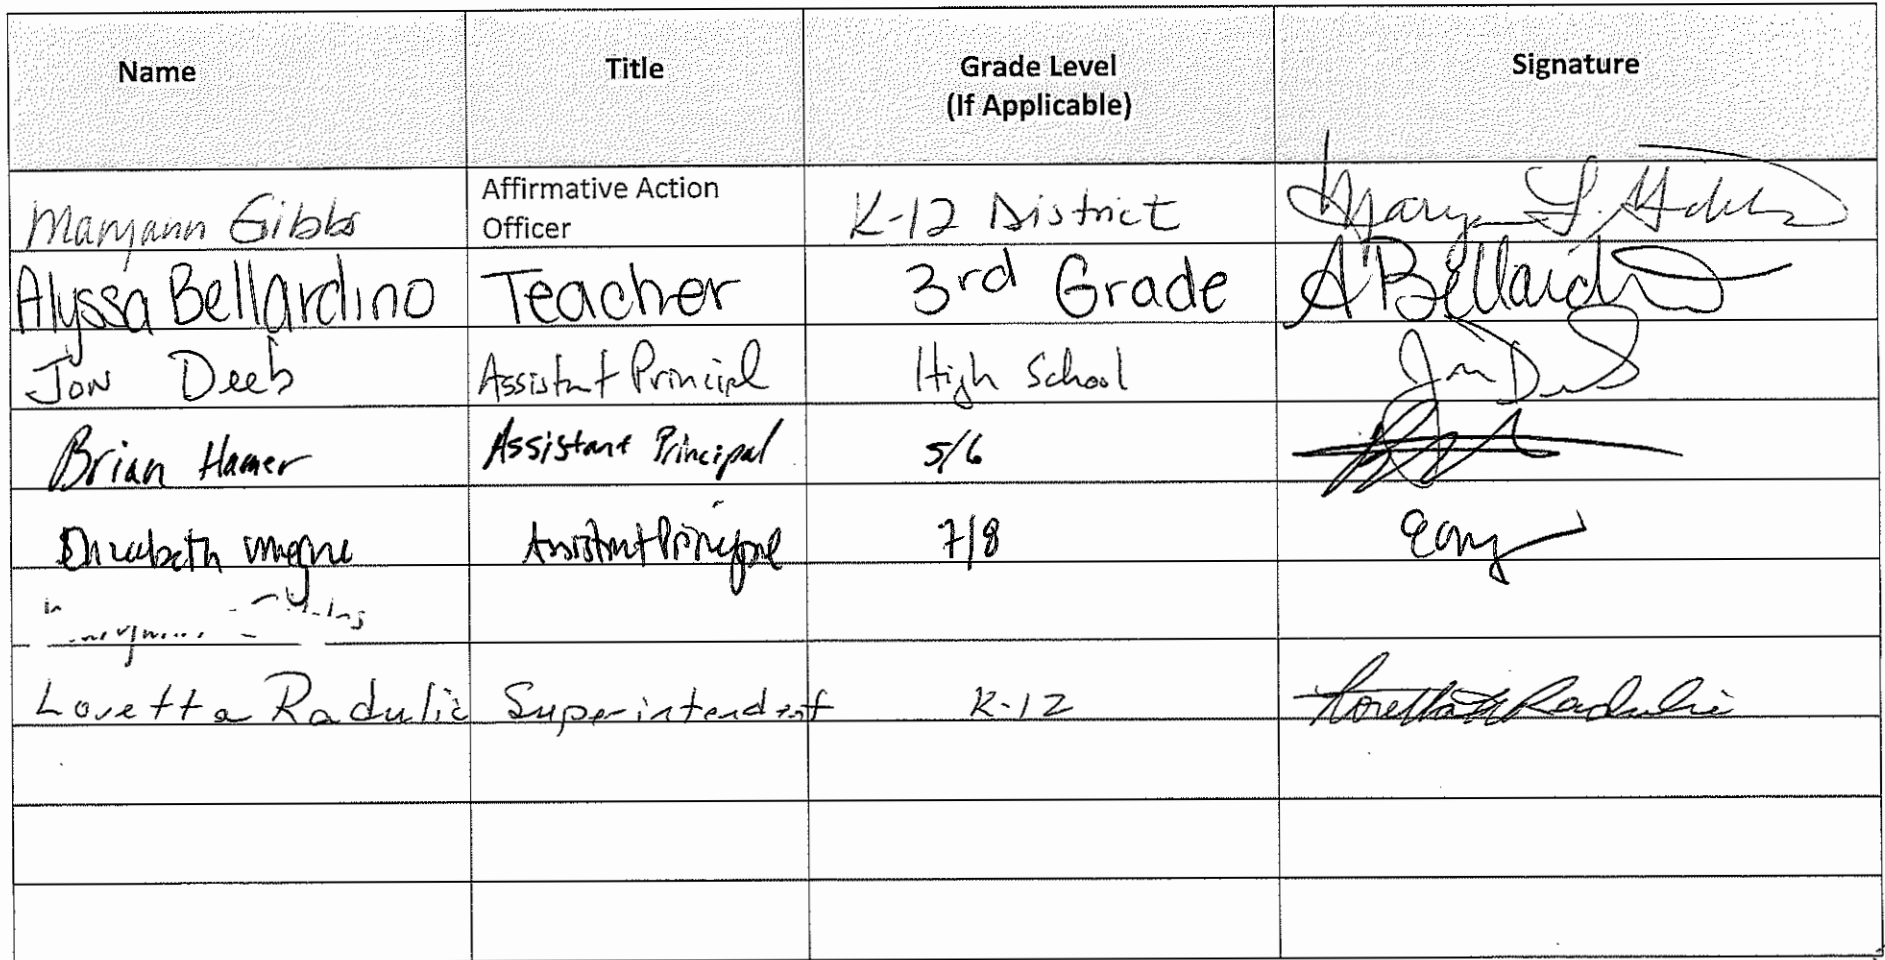 Name Title Grade Level Signature
(If Applicable)
Affirmative Action
Maryann Gibbs Officer K-12 District
Alyssa Bellardino Teacher 3rd Grade A Bellardino
Jon Deeb Assistant Principal High School Jon Deeb
Brian Hamer Assistant Principal 5/6
Elizabeth Assistant Principal 7/8
Loretta Radulic Superintendent K-12 Loretta Radulic